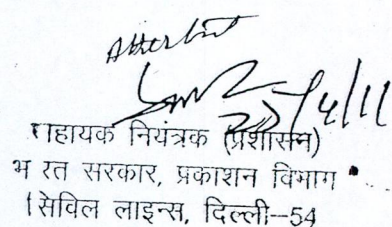 Attested
20/4/11
सहायक नियंत्रक (प्रशासन)
भ रत सरकार, प्रकाशन विभाग
सिविल लाइन्स, दिल्ली–54